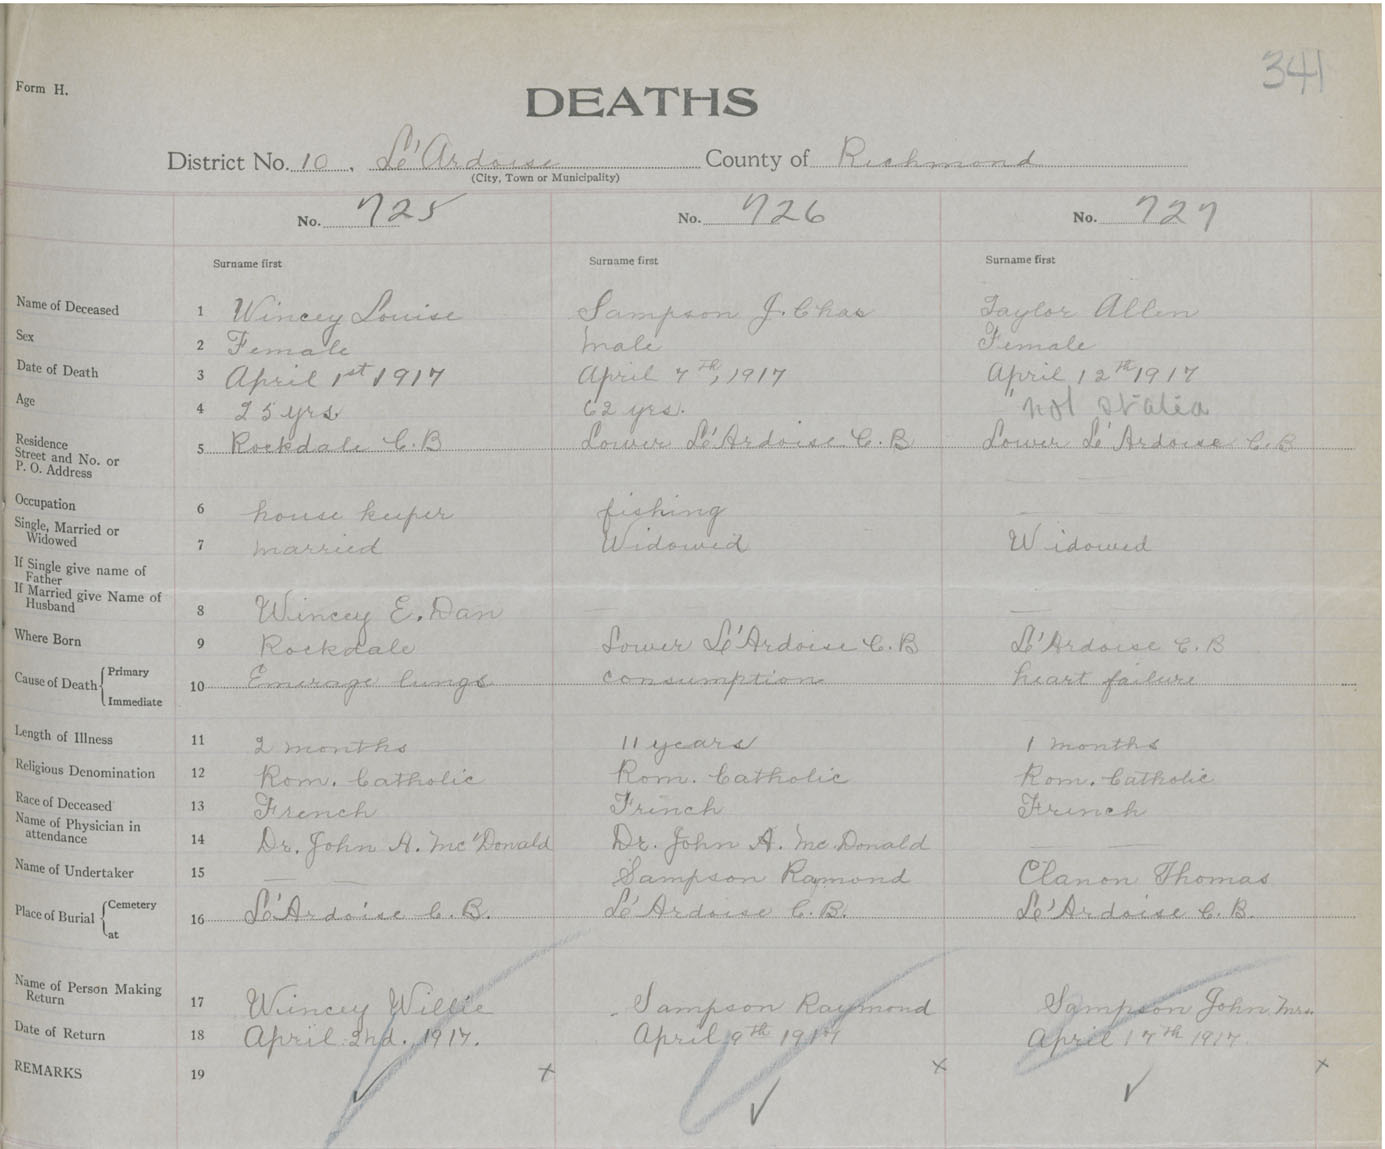 341
Form H.
DEATHS
District No. 10, Le'Ardoise County of Richmond
(City, Town or Municipality)
No. 725 No. 726 No. 727
Surname first Surname first Surname first
Name of Deceased 1 Wincey Louise Sampson J. Chas Taylor Allen
Sex 2 Female Male Female
Date of Death 3 April 1st 1917 April 7th, 1917 April 12th 1917
Age 4 25 yrs 62 yrs. "not stated
Residence
Street and No. or
P. O. Address 5 Rockdale C.B Lower Le'Ardoise C.B Lower Le'Ardoise C.B
Occupation 6 house keeper fishing
Single, Married or
Widowed 7 married Widowed Widowed
If Single give name of
Father
If Married give Name of
Husband 8 Wincey E. Dan
Where Born 9 Rockdale Lower Le'Ardoise C.B Le'Ardoise C.B
Cause of Death { Primary
Immediate 10 Emerage lungs consumption heart failure
Length of Illness 11 2 months 11 years 1 months
Religious Denomination 12 Rom. Catholic Rom. Catholic Rom. Catholic
Race of Deceased 13 French French French
Name of Physician in
attendance 14 Dr. John A. Mc"Donald Dr. John A. Mc.Donald
Name of Undertaker 15 Sampson Ramond Clanon Thomas
Place of Burial { Cemetery
at 16 Le'Ardoise C.B. Le'Ardoise C.B. Le'Ardoise C.B.
Name of Person Making
Return 17 Wincey Willie Sampson Raymond Sampson John Mrs.
Date of Return 18 April 2nd. 1917. April 9th 1917 April 17th 1917.
REMARKS 19 x x x